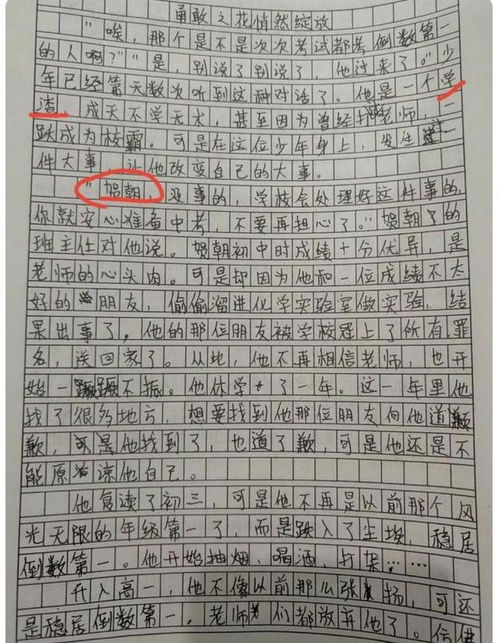 勇敢之花悄然绽放
"唉，那个是不是次次考试都考倒数第一
的人啊？""是，别说了别说了，他过来了。"少
年已经第无数次听到这种对话了。他是一个学
渣，成天不学无术，甚至因为曾经打老师，一
跃成为校霸。可是在这位少年身上，发生过一
件大事，让他改变自己的大事。
"贺朝，没事的，学校会处理好这件事的，
你就安心准备中考，不要再担心了。"贺朝了的
班主任对他说。贺朝初中时成绩十分优异，是
老师的心头肉。可是却因为他和一位成绩不太
好的朋友，偷偷溜进化学实验室做实验，结
果出事了。他的那位朋友被学校冠上了所有罪
名，送回家了。从此，他不再相信老师，也开
始一蹶不振。他休学了一年。这一年里他
找了很多地方，想要找到他那位朋友向他道
歉，可是他找到了，也道了歉，可是他还是不
能原谅他自己。
他复读了初三，可是他不再是以前那个风
光无限的年级第一了，而是跌入了尘埃，稳居
倒数第一。他开始抽烟、喝酒、打架……
升入高一，他不像以前那么张扬，可还
是稳居倒数第一，老师们都放弃他了。